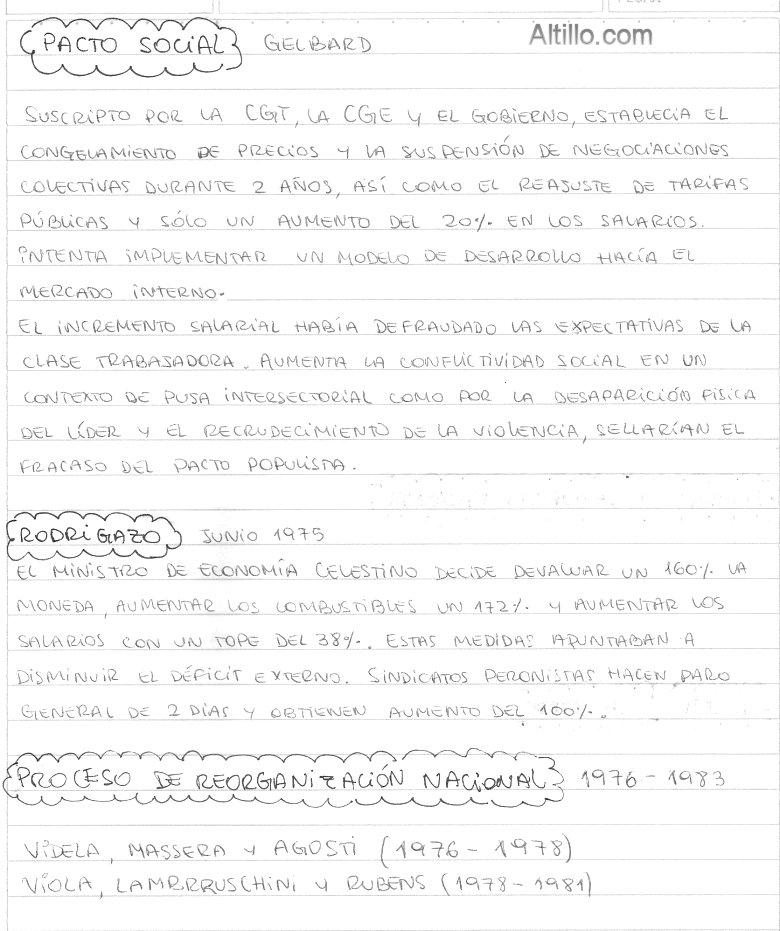 PACTO SOCIAL GELBARD
Altillo.com
SUSCRIPTO POR LA CGT, LA CGE Y EL GOBIERNO, ESTABLECIA EL
CONGELAMIENTO DE PRECIOS Y LA SUSPENSIÓN DE NEGOCIACIONES
COLECTIVAS DURANTE 2 AÑOS, ASÍ COMO EL REAJUSTE DE TARIFAS
PÚBLICAS Y SÓLO UN AUMENTO DEL 20% EN LOS SALARIOS.
INTENTA IMPLEMENTAR UN MODELO DE DESARROLLO HACÍA EL
MERCADO INTERNO.
EL INCREMENTO SALARIAL HABÍA DEFRAUDADO LAS EXPECTATIVAS DE LA
CLASE TRABAJADORA. AUMENTA LA CONFLICTIVIDAD SOCIAL EN UN
CONTEXTO DE PUJA INTERSECTORIAL COMO POR LA DESAPARICIÓN FÍSICA
DEL LÍDER Y EL RECRUDECIMIENTO DE LA VIOLENCIA, SELLARÍAN EL
FRACASO DEL PACTO POPULISTA.
RODRIGAZO JUNIO 1975
EL MINISTRO DE ECONOMÍA CELESTINO DECIDE DEVALUAR UN 160% LA
MONEDA, AUMENTAR LOS COMBUSTIBLES UN 172% Y AUMENTAR LOS
SALARIOS CON UN TOPE DEL 38%. ESTAS MEDIDAS APUNTABAN A
DISMINUIR EL DÉFICIT EXTERNO. SINDICATOS PERONISTAS HACEN PARO
GENERAL DE 2 DÍAS Y OBTIENEN AUMENTO DEL 100%.
PROCESO DE REORGANIZACIÓN NACIONAL 1976 - 1983
VIDELA, MASSERA Y AGOSTI (1976 - 1978)
VIOLA, LAMBRRUSCHINI Y RUBENS (1978 - 1981)